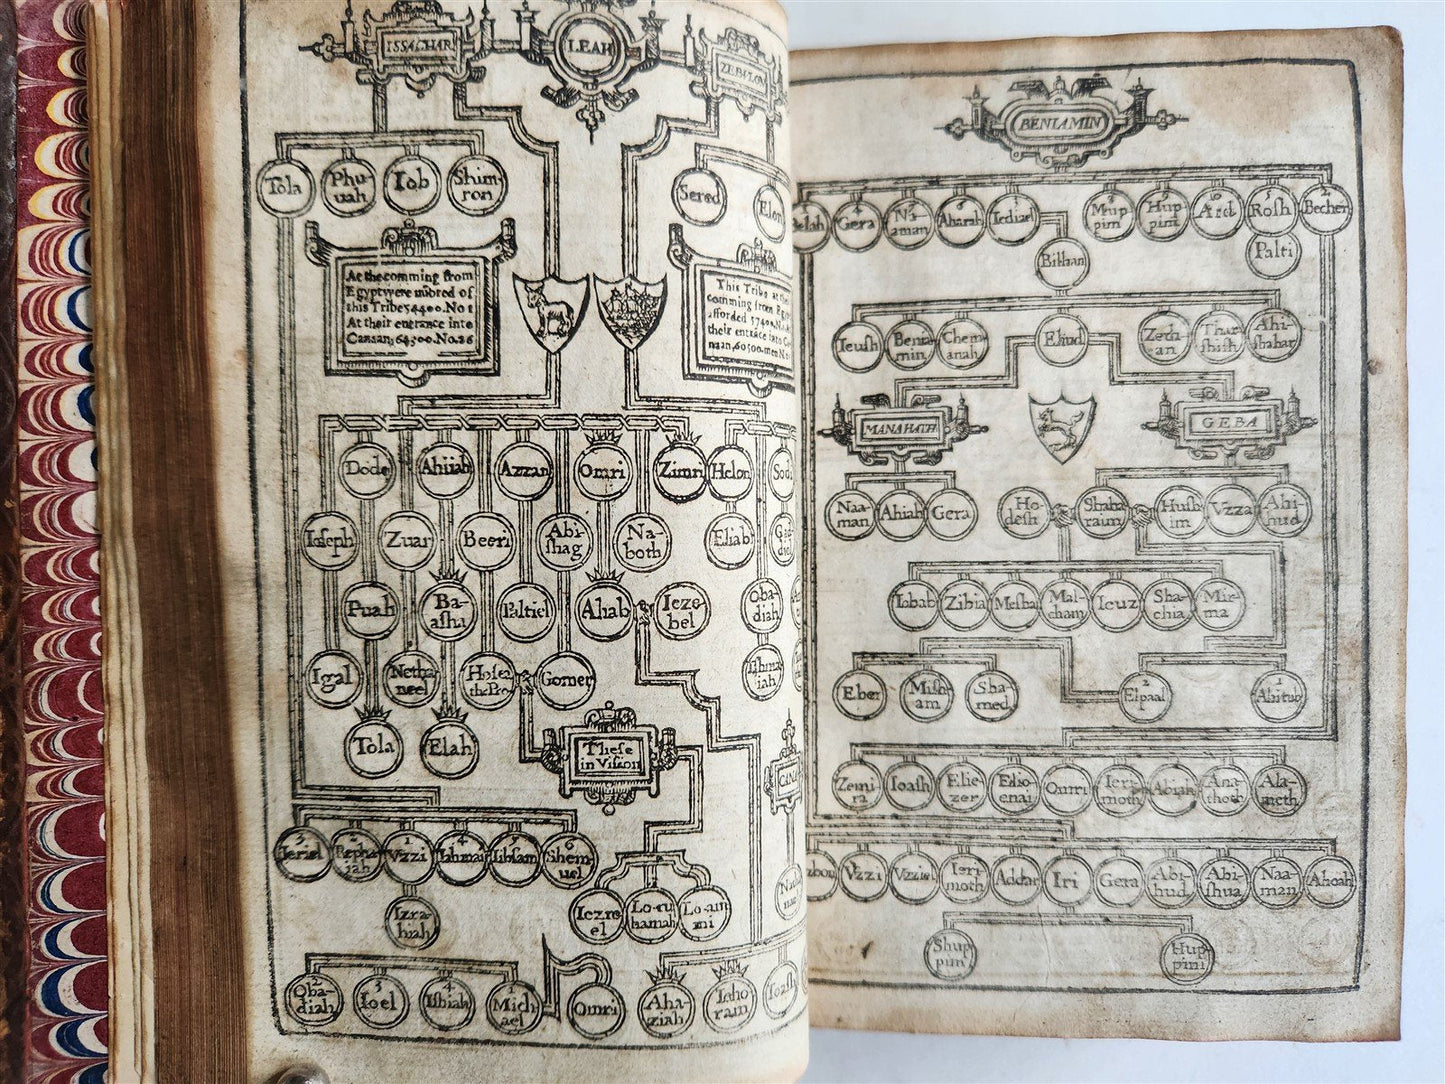 ISSACHAR
LEAH
ZEBULON
Tola
Phu-
vah
Iob
Shim-
ron
Sered
Elon
At the comming from
Egypt were nūbred of
this Tribe 54400. No 1
At their entrance into
Canaan, 64300. No. 26
This Tribe at the
comming from Egyp
afforded 57400.
their entrāce into Ca-
naan, 60500. men No
Dodo
Ahijah
Azzan
Omri
Zimri
Helon
Sodi
Ioseph
Zuar
Beeri
Abi-
shag
Na-
both
Eliab
Gad
diel
Puah
Ba-
asha
Paltiel
Ahab
Ieze-
bel
Oba-
diah
Igal
Netha
neel
Hosea
the Pro
Gomer
Ishma-
iah
Tola
Elah
These
in Vision
CANA
3
Ieriel
2
Repha-
iah
1
Vzzi
4
Iahmai
5
Iibsam
6
Shem-
uel
Izra-
hiah
Iezre
el
Lo-ru
hamah
Lo-am
mi
2
Oba-
diah
3
Ioel
4
Ishiah
1
Mich
ael
Omri
Aha-
ziah
Iaho-
ram
Ioash
BENIAMIN
Belah
4
Gera
5
Na-
aman
Aharah
Iediael
8
Mup
pim
Hup-
pim
Ard
Rosh
2
Becher
Palti
Bilhan
Ieush
Benia
min
Chen-
anah
Ehud
Zetha-
an
Thar-
shish
Ahi-
shahar
MANAHATH
GEBA
Naa-
man
Ahiah
Gera
Ho-
desh
Shaha
raim
Hush-
im
Vzza
Ahi-
hud
Iobab
Zibia
Mesha
Mal-
cham
Ieuz
Sha-
chia
Mir-
ma
Eber
Mish-
am
Sha-
med
2
Elpaal
1
Ahitub
Zemi-
ra
Ioash
Elie-
zer
Elio-
enai
Omri
Ieri-
moth
Abiah
Ana-
thoth
Ala-
meth
Ezbon
Vzzi
Vzziel
Ieri-
moth
Addar
Iri
Gera
Abi-
hud
Abi-
shua
Naa-
man
Ahoah
Shup
pim
Hup-
pim